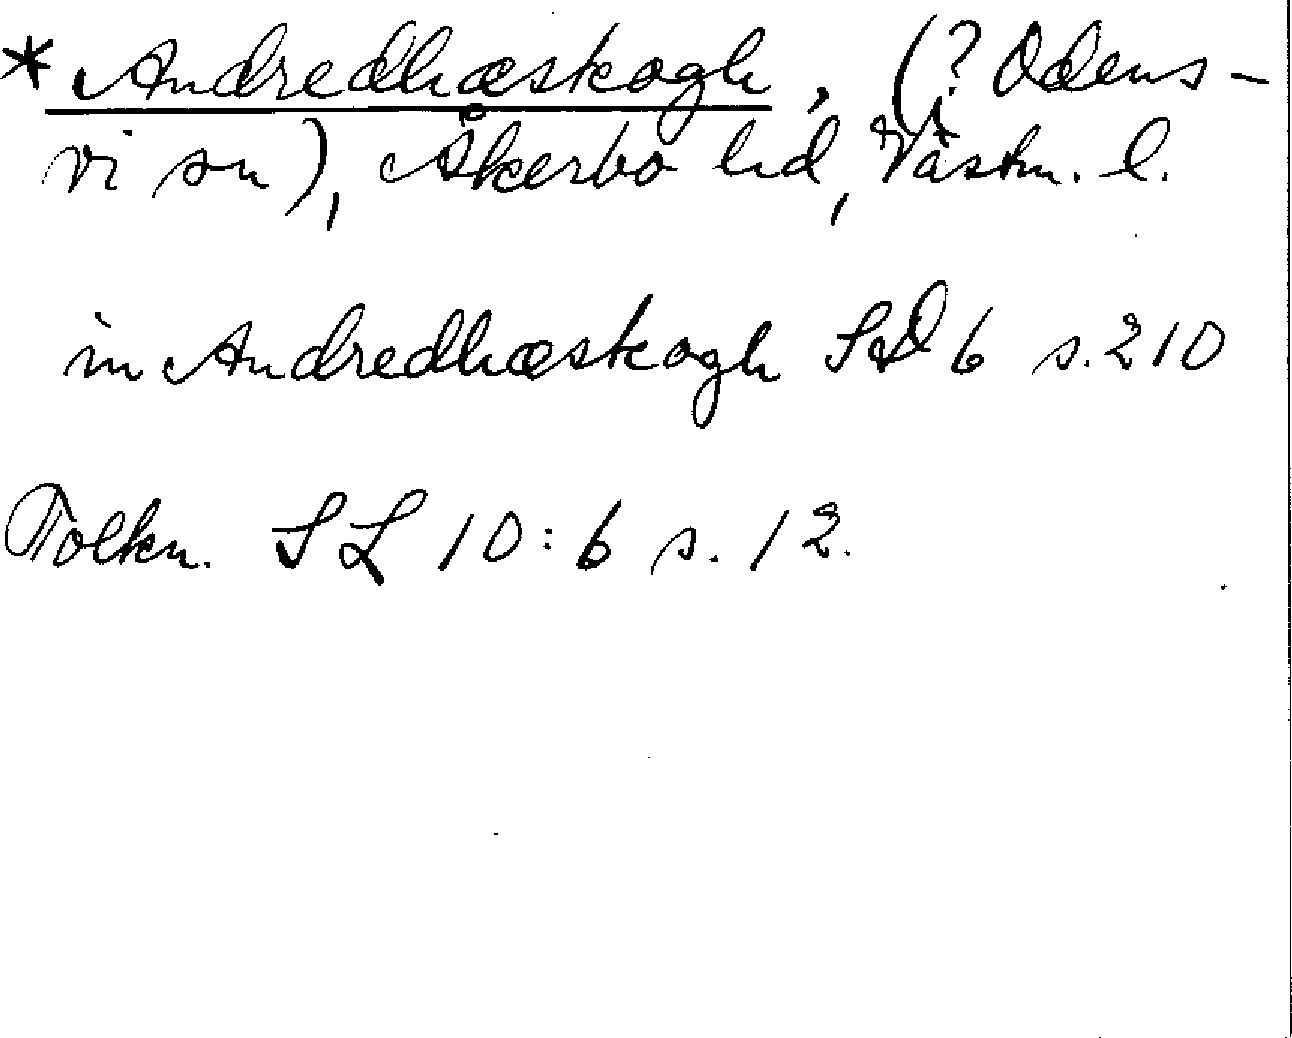 *Andredhæskogh, (? Odens-
vi sn), Åkerbo hd, Västm. l.
in Andredhæskogh SD 6 s. 210
Tolkn. SL 10:6 s. 12.